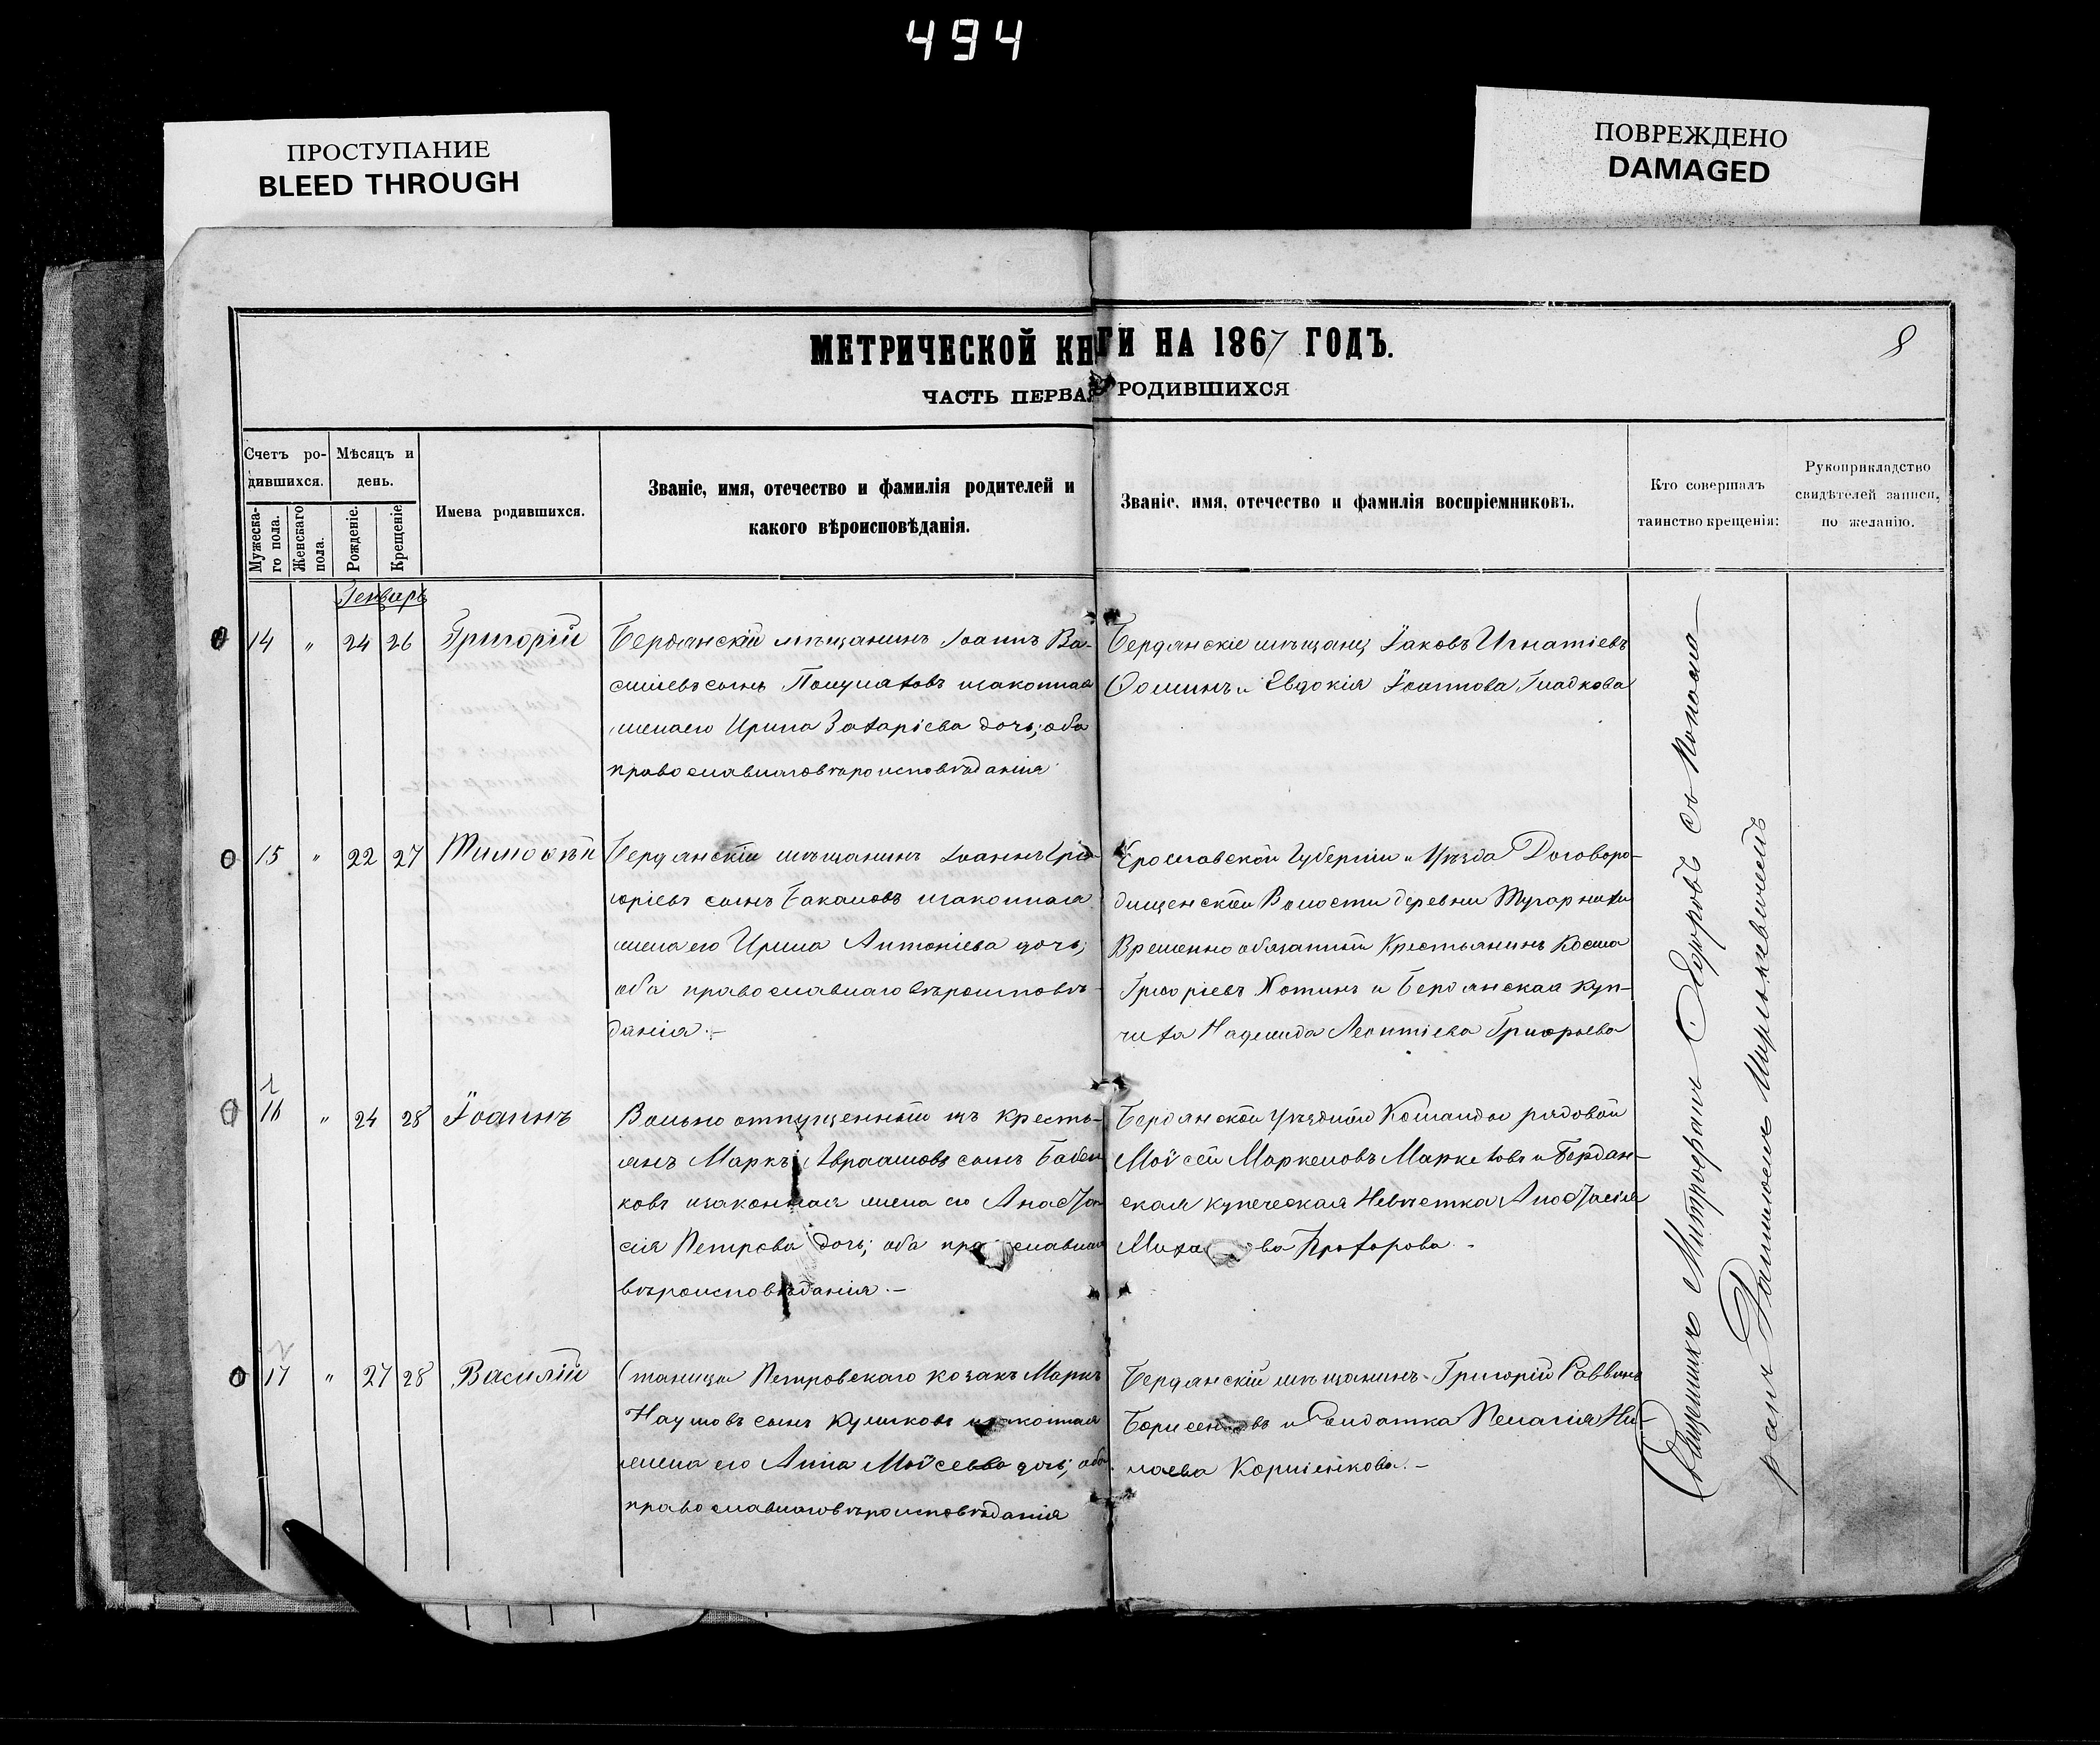 494
ПРОСТУПАНИЕ
BLEED THROUGH
ПОВРЕЖДЕНО
DAMAGED
МЕТРИЧЕСКОЙ КНИГИ НА 1867 ГОДЪ.
8
ЧАСТЬ ПЕРВАЯ РОДИВШИХСЯ
Счетъ ро-
дившихся.
Мужеска-
го пола.
Женскаго
пола.
Мѣсяцъ и
день.
Рожденіе.
Крещеніе.
Имена родившихся.
Званіе, имя, отечество и фамилія родителей и
какого вѣроисповѣданія.
Званіе, имя, отечество и фамилія воспріемниковъ.
Кто совершалъ
таинство крещенія:
Рукоприкладство
свидѣтелей записи,
по желанію.
Генварь
14 " 24 26 Григорій
Бердянскій мѣщанинъ Іоаннъ Ва-
силіевъ сынъ изаконная
жена его Ирина Захаріева дочь; оба
православнаго вѣроисповѣданія
Бердянскіе мѣщане Іаковъ Игнатіевъ
Фоминъ и Евдокія Іоаннова Гладкова
15 " 22 27 Тимоѳей
Бердянскій мѣщанинъ Іоаннъ Гри-
горіевъ сынъ Бакаловъ изаконная
жена его Ирина Антоніева дочь;
оба православнаго вѣроисповѣ-
данія.-
Ярославской Губерніи и Уѣзда
Волости деревни
Временно обязанный Крестьянинъ Косма
Григоріевъ Котинъ и Бердянская куп-
чиха Надежда Леонтіева Григорьева
16 " 24 28 Іоаннъ
Вольно отпущенный изъ кресть-
янъ Маркъ Авраамовъ сынъ Бабен
ковъ изаконная жена его Анаста
сія Петрова дочь; оба православнаго
вѣроисповѣданія.-
Бердянской уѣздной Команды рядовой
Мойсей Маркеловъ и Бердян-
ская купеческая Невѣстка Анастасія
Прохорова.
17 " 27 28 Василій
Станицы Петровскаго козакъ Маркъ
Наумовъ сынъ Куликовъ изаконная
жена его Анна Мойсеева дочь; оба
православнаго вѣроисповѣданія
Бердянскій мѣщанинъ Григорій Саввинъ
и Солдатка Пелагія Ни-
лаева Корніенкова.-
Священникъ Митрофанъ Ѳедоровъ съ Понома-
ремъ